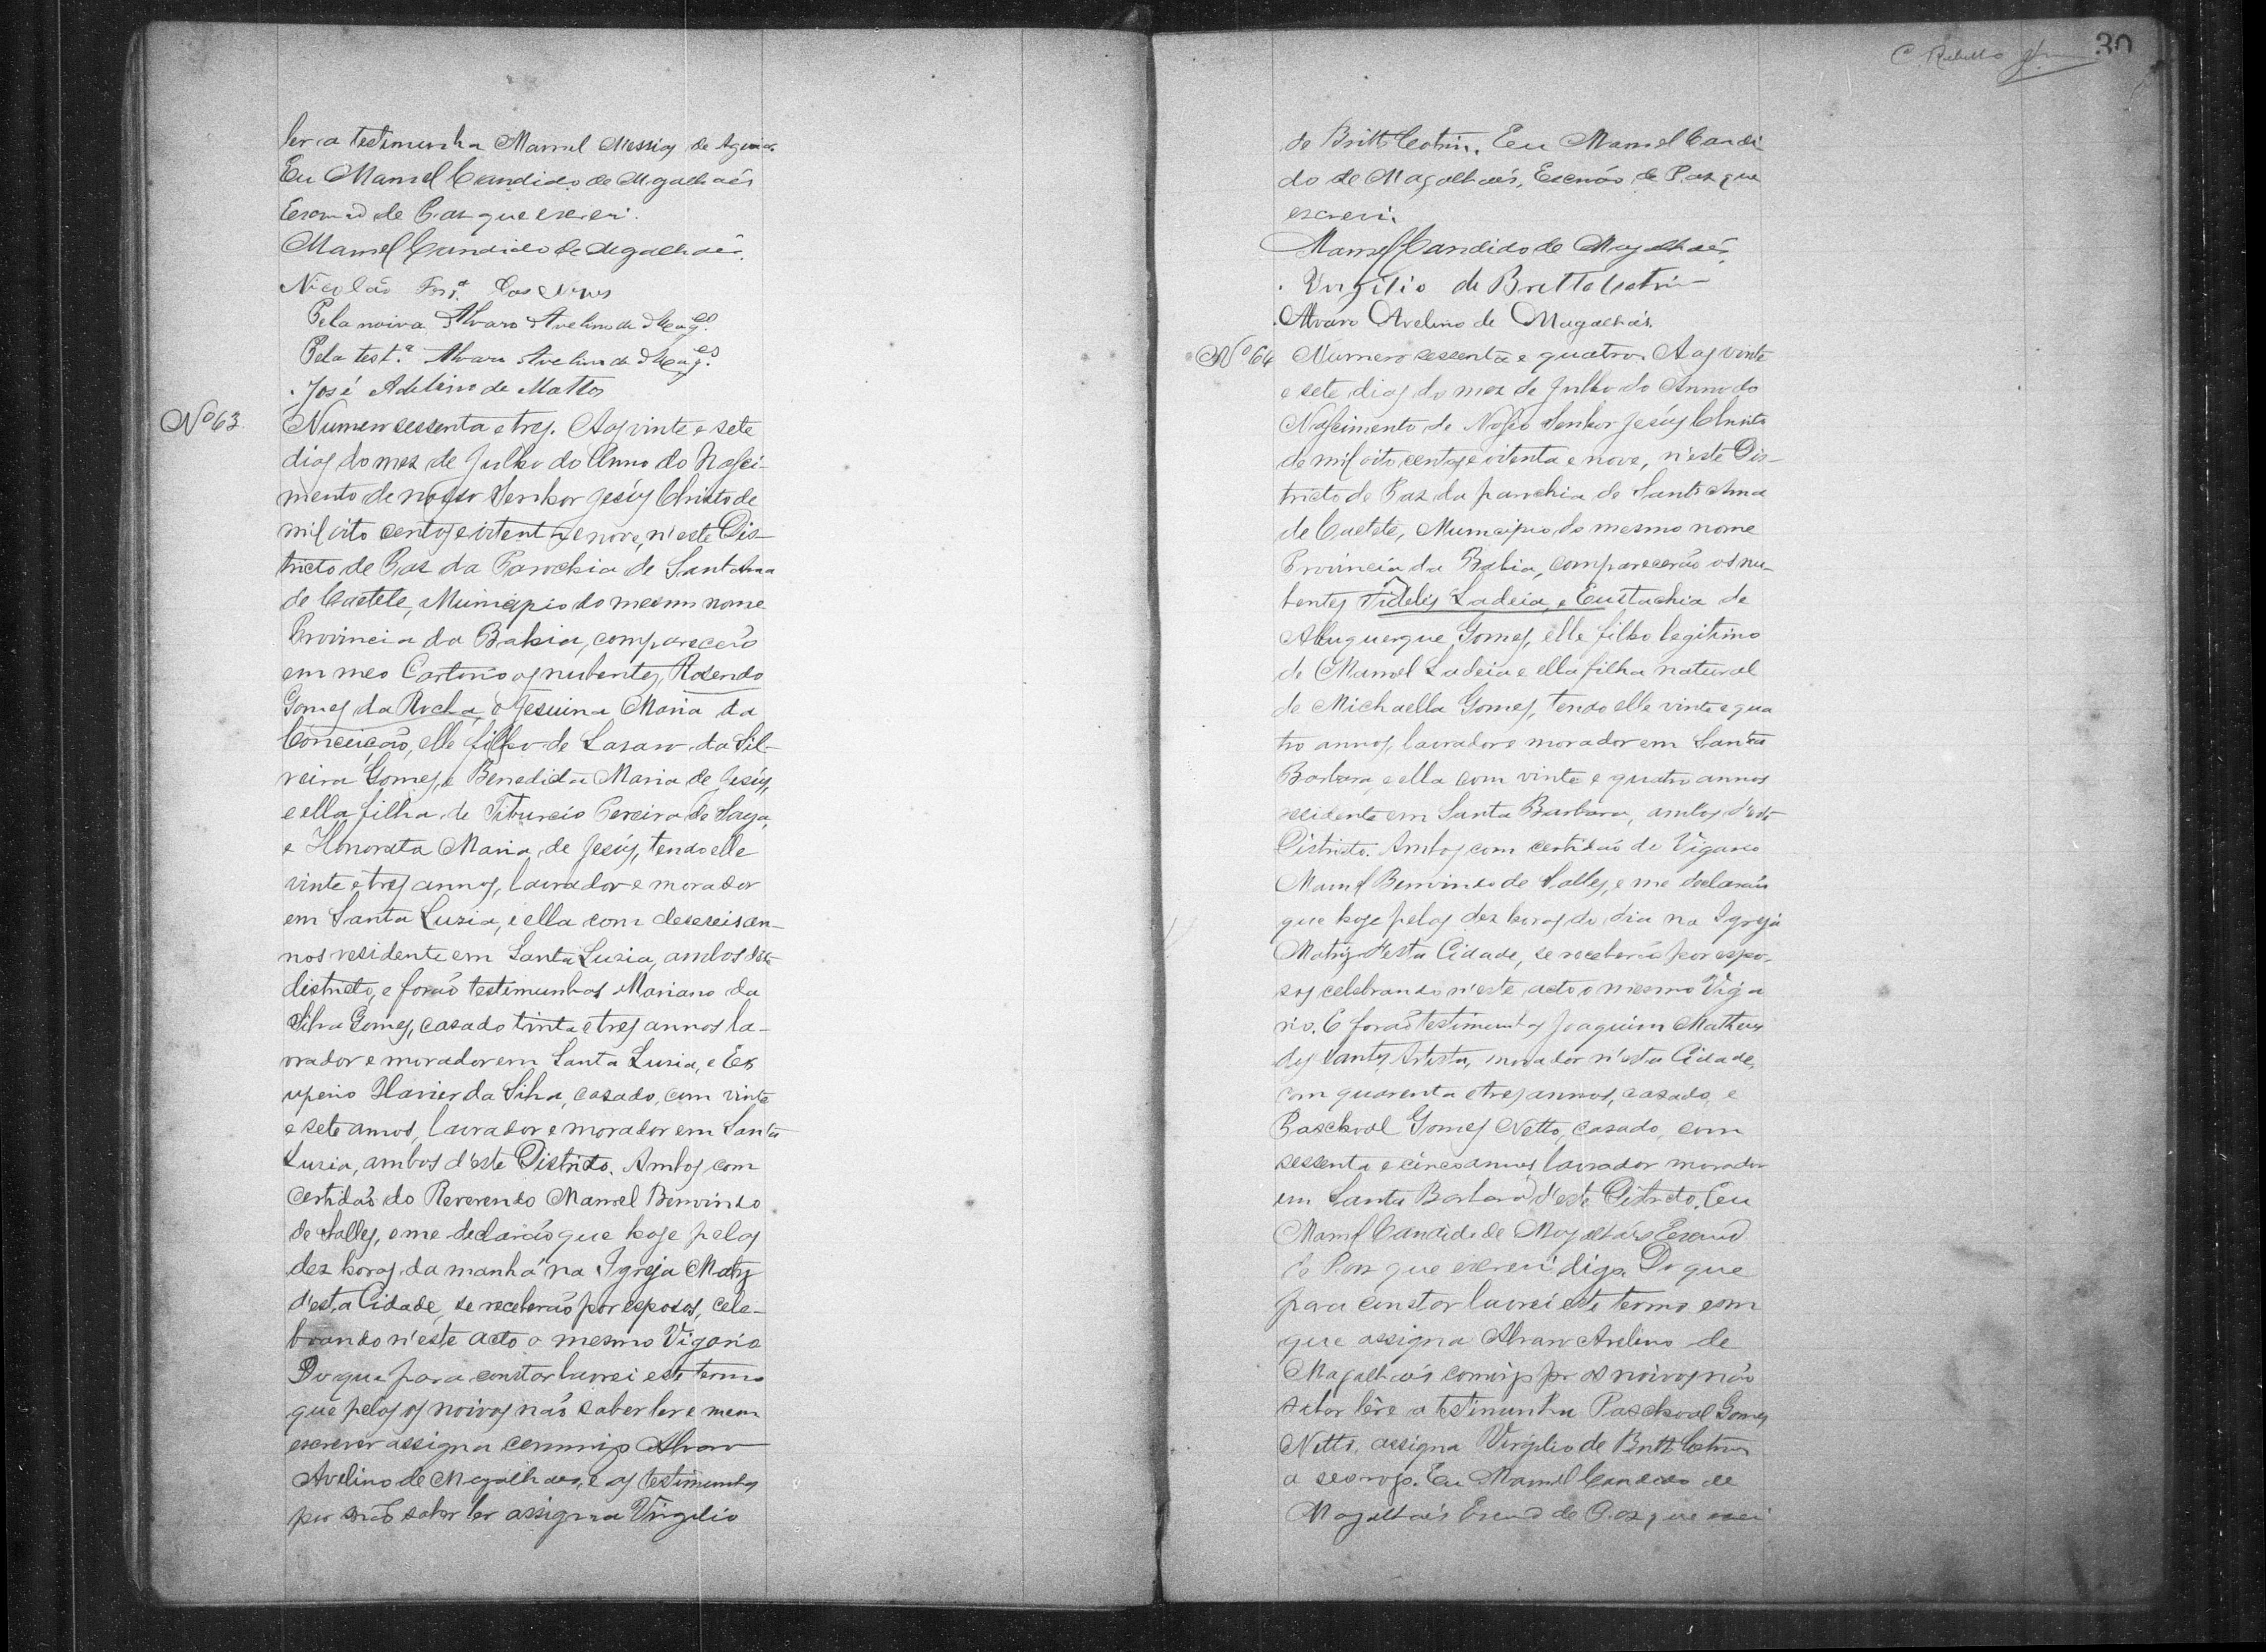 ler a testimunha Manoel Messias de Aguiar.
Eu Manoel Candido de Magalhaés
Escrivão de Paz que escrevi.
Manoel Candido de Magalhaés.
Nicoláo Frr.ª das Neves
Pela noiva Alvaro Avelino de Mag.es
Pela test.ª Alvaro Avelino de Mag.es
José Adelino de Mattos
Nº 63.
Numero sessenta e tres. Aos vinte e sete
dias do mez de Julho do Anno do Nasci-
mento de nosso Senhor Jesús Christo de
mil oito centos e oitenta e nove, n'este Dis-
tricto de Paz da Parochia de Sant'Anna
de Caetete, Municipio do mesmo nome
Provincia da Bahia, comparecerão
em meo Cartorio os nubentes, Rosendo
Gomes da Rocha, e Jesuina Maria da
Conceição, elle filho de Lasaro da Sil-
veira Gomes, e Benedicta Maria de Jesús,
e ella filha de Tiburcio Pereira de
e Honorata Maria de Jesús, tendo elle
vinte e tres annos, lavrador e morador
em Santa Lusia, e ella com deseseis an-
nos residente em Santa Lusia, ambos d'este
districto, e forão testimunhas Mariano da
Silva Gomes, casado trinta e tres annos la-
vrador e morador em Santa Lusia, e Ex
uperio Xavier da Silva, casado, com vinte
e sete annos, lavrador e morador em Santa
Lusia, ambos d'este Districto. Ambos com
certidaõ do Reverendo Manoel Benvindo
de Salles, e me declarão que hoje pelas
dez horas da manhã na Igreja Matriz
d'esta Cidade, se receberão por esposos, cele-
brando n'este acto o mesmo Vigario
Do que para constar lavrei este termo
que pelos os noivos naõ saber ler e nem
escrever assigna commigo Alvaro
Avelino de Magalhaes, e as testimunhas
por naõ saber ler assigna Virgilio
30
C. Rebello
de Britto Cotrim. Eu Manoel Candi
do de Magalhaés, Escrivão de Paz que
escrevi.
Manoel Candido de Magalhaés
Virgilio de Britto Cotrim
Alvaro Avelino de Magalhaés.
Nº 64
Numero sessenta e quatro. Aos vinte
e sete dias do mez de Julho do Anno do
Nascimento de Nosso Senhor Jesús Christo
de mil oito centos e oitenta e nove, n'este Dis-
tricto de Paz da parochia de Sant'Anna
de Caetete, Municipio do mesmo nome
Provincia da Bahia, comparecerão os nu-
bentes Fidelis Ladeia, e Eustachia de
Albuquerque Gomes, elle filho legitimo
de Manoel Ladeia e ella filha natural
de Michaella Gomes, tendo elle vinte e qua
tro annos, lavrador e morador em Santa
Barbara, e ella com vinte e quatro annos
residente em Santa Barbara, ambos d'este
Districto. Ambos com certidaõ do Vigario
Manoel Benvindo de Salles, e me declarão
que hoje pelas dez horas do dia na Igreja
Matriz d'esta Cidade, se receberão por espo-
sos celebrando n'este acto o mesmo Viga
rio. E forão testimunhas Joaquim Matheus
dos Santos, Artista, morador n'esta Cidade,
com quarenta e tres annos, casado, e
Paschoal Gomes Netto, casado, com
sessenta e cinco annos lavrador morador
em Santa Barbara d'este Districto. Eu
Manoel Candido de Magalhaés Escrivão
de Paz que escrevi digo. Do que
para constar lavrei este termo em
que assigna Alvaro Avelino de
Magalhaés comigo por os noivos não
saber lêr e a testimunha Paschoal Gomes
Netto, assigna Virgilio de Britto Cotrim
a seo rogo. Eu Manoel Candido de
Magalhaés Escrivão de Paz que escrevi